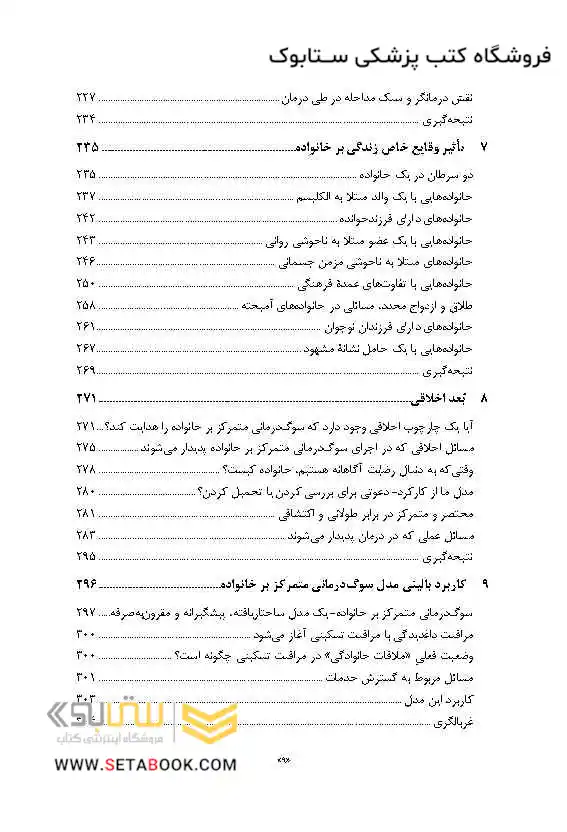 فروشگاه کتب پزشکی ستابوک
نقش درمانگر و سبک مداخله در طی درمان ... ۲۲۷
نتیجه‌گیری ... ۲۳۴
۷ تأثیر وقایع خاص زندگی بر خانواده ... ۲۳۵
دو سرطان در یک خانواده ... ۲۳۵
خانواده‌هایی با یک والد مبتلا به الکلیسم ... ۲۳۷
خانواده‌های دارای فرزندخوانده ... ۲۴۲
خانواده‌هایی با یک عضو مبتلا به ناخوشی روانی ... ۲۴۳
خانواده‌های مبتلا به ناخوشی مزمن جسمانی ... ۲۴۶
خانواده‌هایی با تفاوت‌های عمدهٔ فرهنگی ... ۲۵۰
طلاق و ازدواج مجدد، مسائلی در خانواده‌های آمیخته ... ۲۵۸
خانواده‌های دارای فرزندان نوجوان ... ۲۶۱
خانواده‌هایی با یک حامل نشانهٔ مشهود ... ۲۶۷
نتیجه‌گیری ... ۲۶۹
۸ بُعد اخلاقی ... ۲۷۱
آیا یک چارچوب اخلاقی وجود دارد که سوگ‌درمانی متمرکز بر خانواده را هدایت کند؟ ... ۲۷۱
مسائل اخلاقی که در اجرای سوگ‌درمانی متمرکز بر خانواده پدیدار می‌شوند ... ۲۷۵
وقتی‌که به دنبال رضایت آگاهانه هستیم، خانواده کیست؟ ... ۲۷۸
مدل ما از کارکرد- دعوتی برای بررسی کردن یا تحمیل کردن؟ ... ۲۸۰
مختصر و متمرکز در برابر طولانی و اکتشافی ... ۲۸۱
مسائل عملی که در درمان پدیدار می‌شوند ... ۲۸۳
نتیجه‌گیری ... ۲۹۵
۹ کاربرد بالینی مدل سوگ‌درمانی متمرکز بر خانواده ... ۲۹۶
سوگ‌درمانی متمرکز بر خانواده-یک مدل ساختاریافته، پیشگیرانه و مقرون‌به‌صرفه ... ۲۹۷
مراقبت داغدیدگی با مراقبت تسکینی آغاز می‌شود ... ۳۰۰
وضعیت فعلی «ملاقات خانوادگی» در مراقبت تسکینی چگونه است؟ ... ۳۰۰
مسائل مربوط به گسترش خدمات ... ۳۰۱
کاربرد این مدل ... ۳۰۳
غربالگری ...
ستابوک
فروشگاه اینترنتی کتاب
WWW.SETABOOK.COM
«۹»